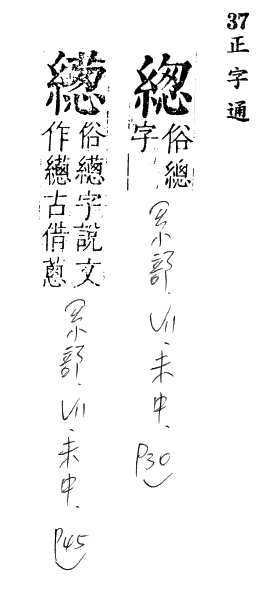 37正字通
緫 俗總字
糸部.VII.未中.P30
俗繱字說文
作繱古借蔥
糸部.VII.未中.P45